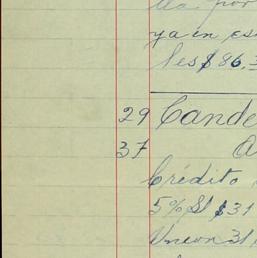 da. por
ya in es
les $86,3
29 Cande
37 A
Crédito
5% Sl $31
Union 31